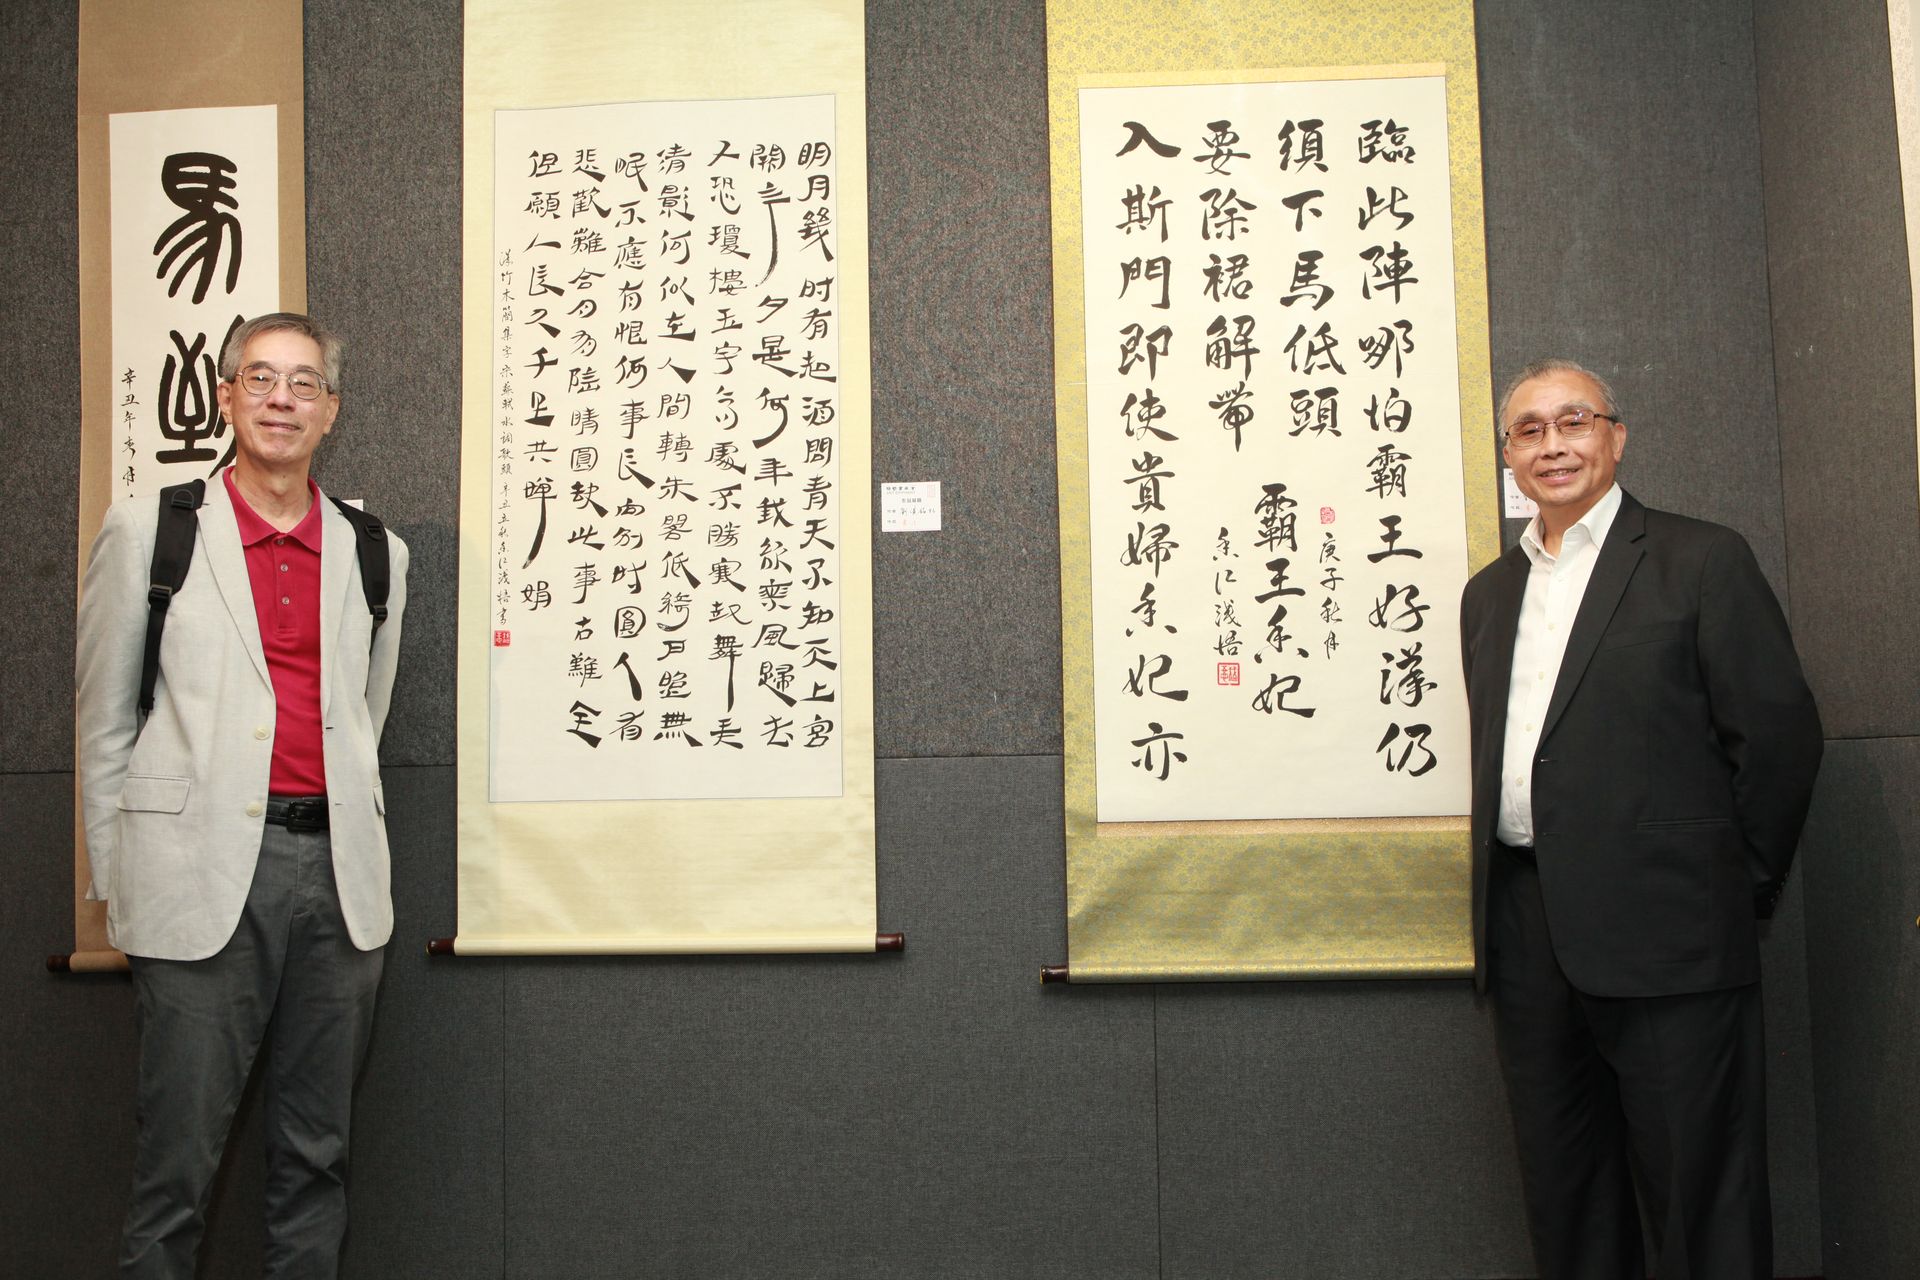 馬到
辛丑年春月
明月幾時有把酒問青天不知天上宮
闕今夕是何年我欲乘風歸去
又恐瓊樓玉宇高處不勝寒起舞弄
清影何似在人間轉朱閣低綺戶照無
眠不應有恨何事長向別時圓人有
悲歡難合月有陰晴圓缺此事古難全
但願人長久千里共嬋娟
漢竹木簡集字宋蘇軾水調歌頭辛丑立秋香江淺悟書
臨此陣哪怕霸王好漢仍
須下馬低頭
入斯門即使貴婦香妃亦
要除裙解帶
庚子秋月
霸王香妃
香江淺悟